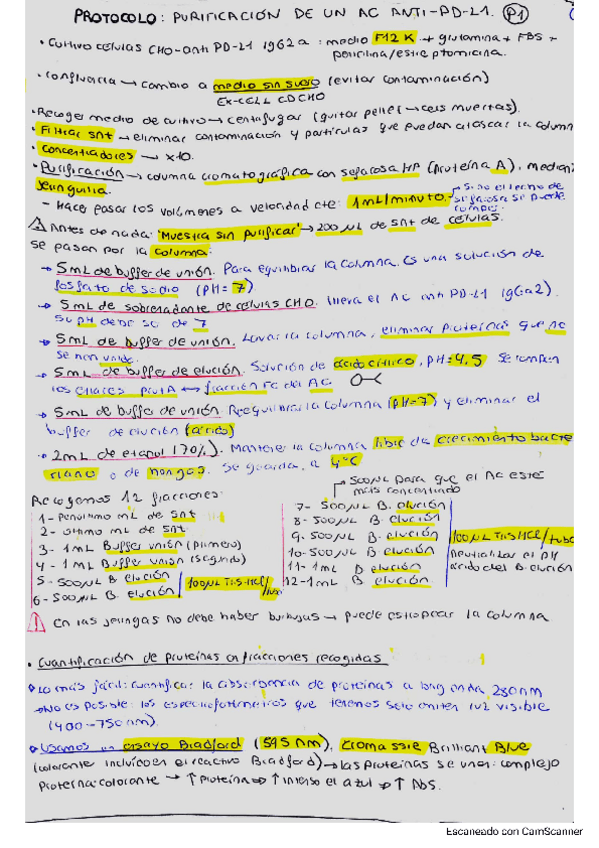 PROTOCOLO: PURIFICACIÓN DE UN AC ANTI-PD-L1. P1
• Cultivo células CHO-anti PD-L1 IgG2a: medio F12K + glutamina + FBS +
penicilina/estreptomicina.
• Confluencia → cambio a medio sin suero (evitar contaminación)
EX-CELL CD CHO
• Recoger medio de cultivo → centrifugar (quitar pellet → cels muertas).
• Filtrar snt → eliminar contaminación y partículas que puedan atascar la column
• Concentradores → x10.
• Purificación → columna cromatográfica con sepharosa HP (proteína A), median
jeringuilla.
- Hace pasar los volúmenes a velocidad cte: 1mL/minuto.
⚠ Antes de nada: "Muestra sin purificar" → 200 µL de snt de células.
se pasan por la columna:
→ 5mL de buffer de unión. Para equilibrar la columna. Es una solución de
fosfato de sodio (pH=7).
→ 5mL de sobrenadante de células CHO. (lleva el Ac anti PD-L1 IgG2a).
Su pH debe ser de 7
→ 5mL de buffer de unión. Lavar la columna, eliminar proteínas que no
se han unido.
→ 5mL de buffer de elución. Solución de ácido cítrico, pH=4,5 Se rompen
los enlaces prot A ↔ fracción FC del AC.
→ 5mL de buffer de unión. Reequilibrar la columna (pH=7) y eliminar el
buffer de elución (ácido)
→ 2mL de etanol (70%). Mantener la columna libre de crecimiento bacte
riano o de hongos. Se guarda a 4°C
→ 500µL para que el Ac esté
más concentrado
Recogemos 12 fracciones:
1- Penúltimo mL de snt
2- Último mL de snt
3- 1mL Buffer unión (primero)
4- 1mL Buffer unión (segundo)
5- 500µL B elución
6- 500µL B. elución
100µL Tris HCl/
7- 500µL B. elución
8- 500µL B. elución
9- 500µL B. elución
10- 500µL B. elución
11- 1mL B. elución
12- 1mL B. elución
100µL Tris HCl/tubo
neutralizar el pH
ácido del B. elución
⚠ En las jeringas no debe haber burbujas → puede estropear la columna
• Cuantificación de proteínas en fracciones recogidas
Lo más fácil: cuantificar la absorbancia de proteínas a long onda 280nm
→ No es posible: los espectrofotómetros que tenemos solo emiten luz visible
(400-750nm)
Usamos un ensayo Bradford (595 nm), Comassie Brilliant Blue
(colorante incluido en el reactivo Bradford) → las proteínas se unen: complejo
proteína:colorante → ↑ proteína → ↑ intenso el azul → ↑ Abs.
Escaneado con CamScanner